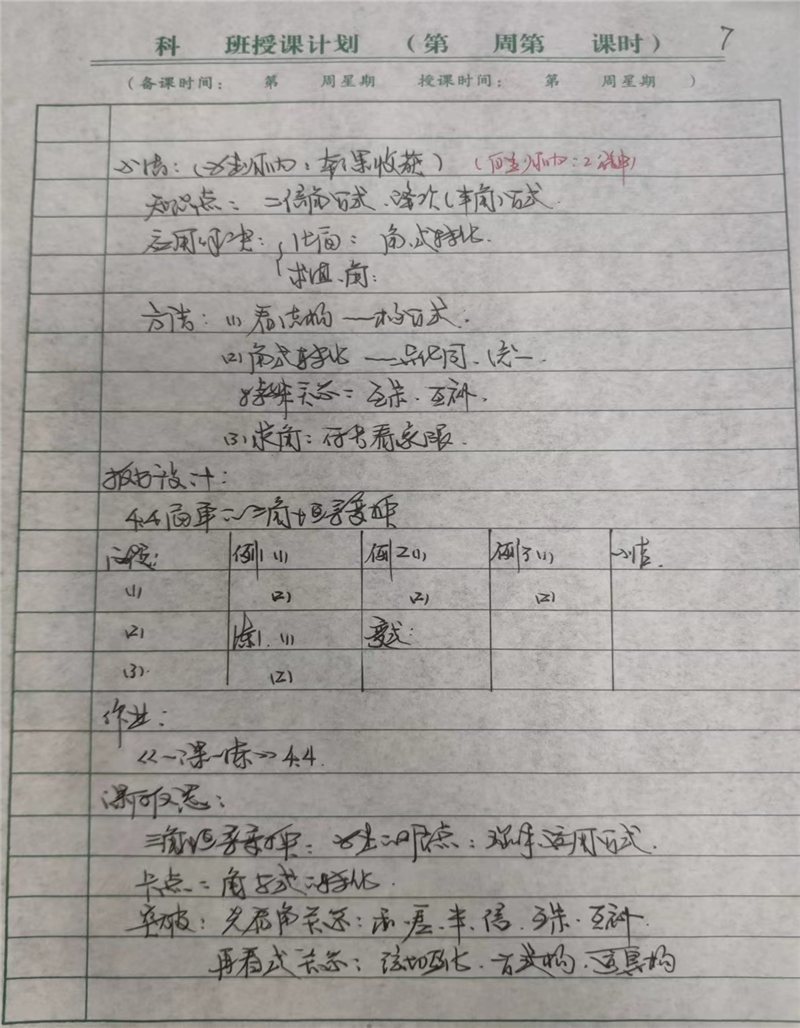 科 班授课计划 （第 周第 课时） 7
（备课时间： 第 周星期 授课时间： 第 周星期 ）
小结：（学生归纳：本课收获）
知识点：二倍角公式、降次（半角）公式.
应用解决：化简：角、式转化.
求值、角：
方法：(1) 看结构——构公式.
(2) 角式转化——异化同、统一.
特殊关系：互余、互补.
(3) 求角：符号看象限.
板书设计：
4.4 简单的三角恒等变换
问题： 例1 (1) 例2 (1) 例3 (1) 小结.
(1) (2) (2) (2)
(2) 练1. (1) 变式：
(3) (2)
作业：
《一课一练》4.4.
课后反思：
三角恒等变换：学生的难点：理解、运用公式.
卡点：角与式的转化.
突破：先看角关系：和、差、半、倍、互余、互补.
再看式关系：弦切互化、